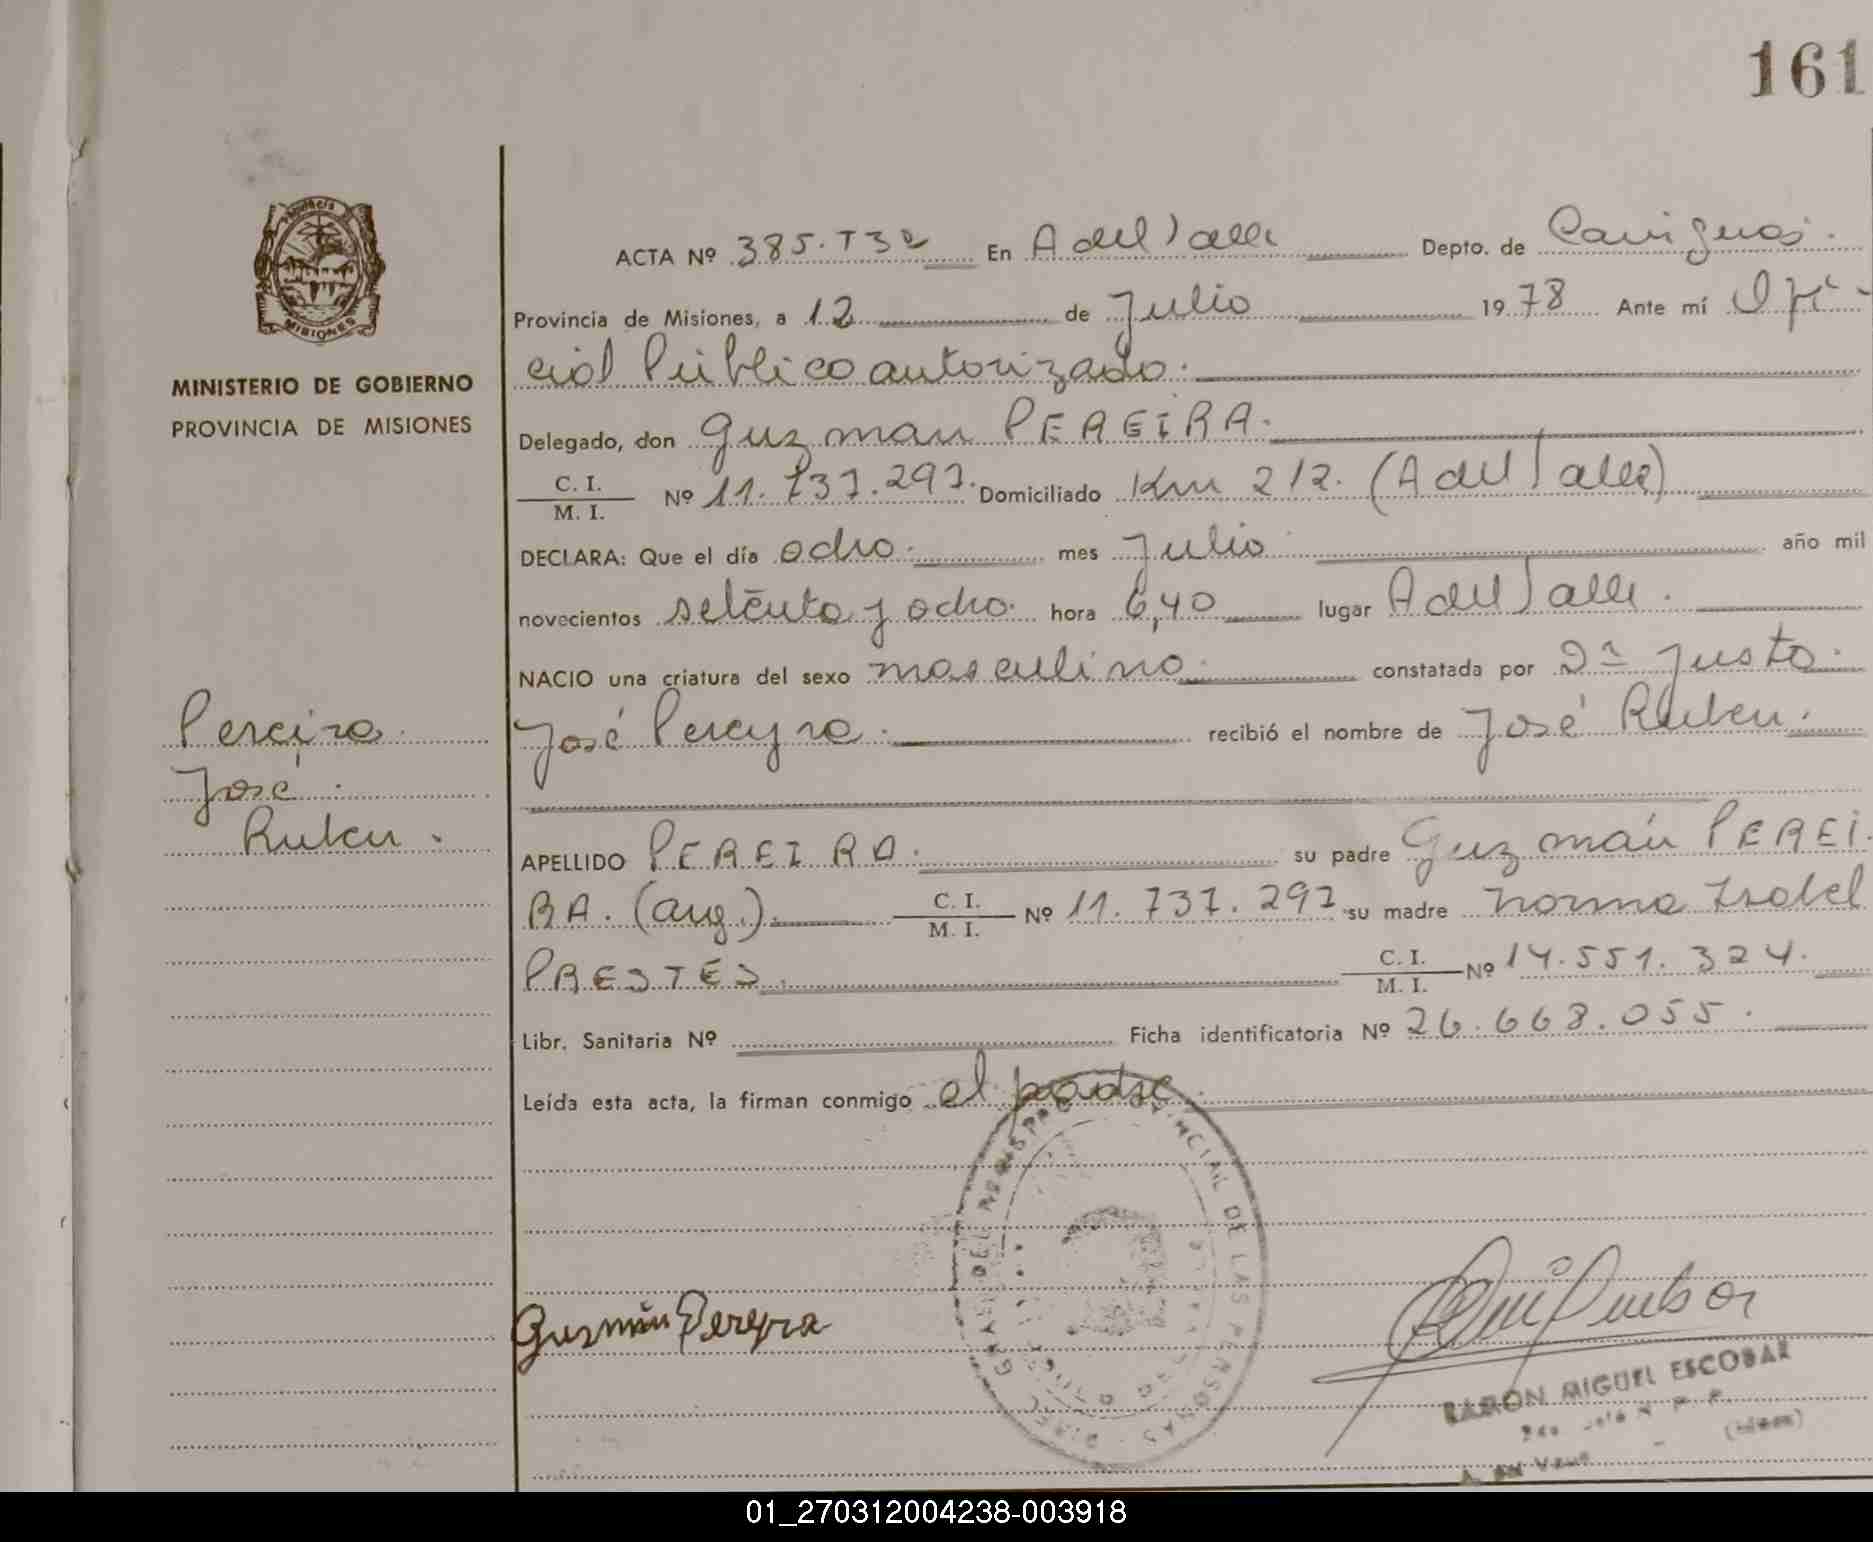 161
ACTA Nº 385. T3º En A del Valle Depto. de Cainguás.
Provincia de Misiones, a 12 de Julio 1978 Ante mí Ofi-
cial Público autorizado.
MINISTERIO DE GOBIERNO
PROVINCIA DE MISIONES
Delegado, don Guzman PEREIRA.
C. I.
M. I.
Nº 11.737.297. Domiciliado Km 212. (A del Valle)
DECLARA: Que el día ocho. mes Julio año mil
novecientos setenta y ocho. hora 6,40 lugar A del Valle.
NACIO una criatura del sexo masculino. constatada por Dº Justo
José Pereyra. recibió el nombre de José Ruben.
Pereira
José
Ruben.
APELLIDO PEREIRA. su padre Guzmán PEREI
RA. (arg.). C. I.
M. I. Nº 11.737.297 su madre Norma Isabel
PRESTES. C. I.
M. I. Nº 14.551.324.
Libr. Sanitaria Nº Ficha identificatoria Nº 26.668.055.
Leída esta acta, la firman conmigo el padre.
PROVINCIAL DE LAS PERSONAS
Guzmán Pereyra
RAMON MIGUEL ESCOBAR
01_270312004238-003918